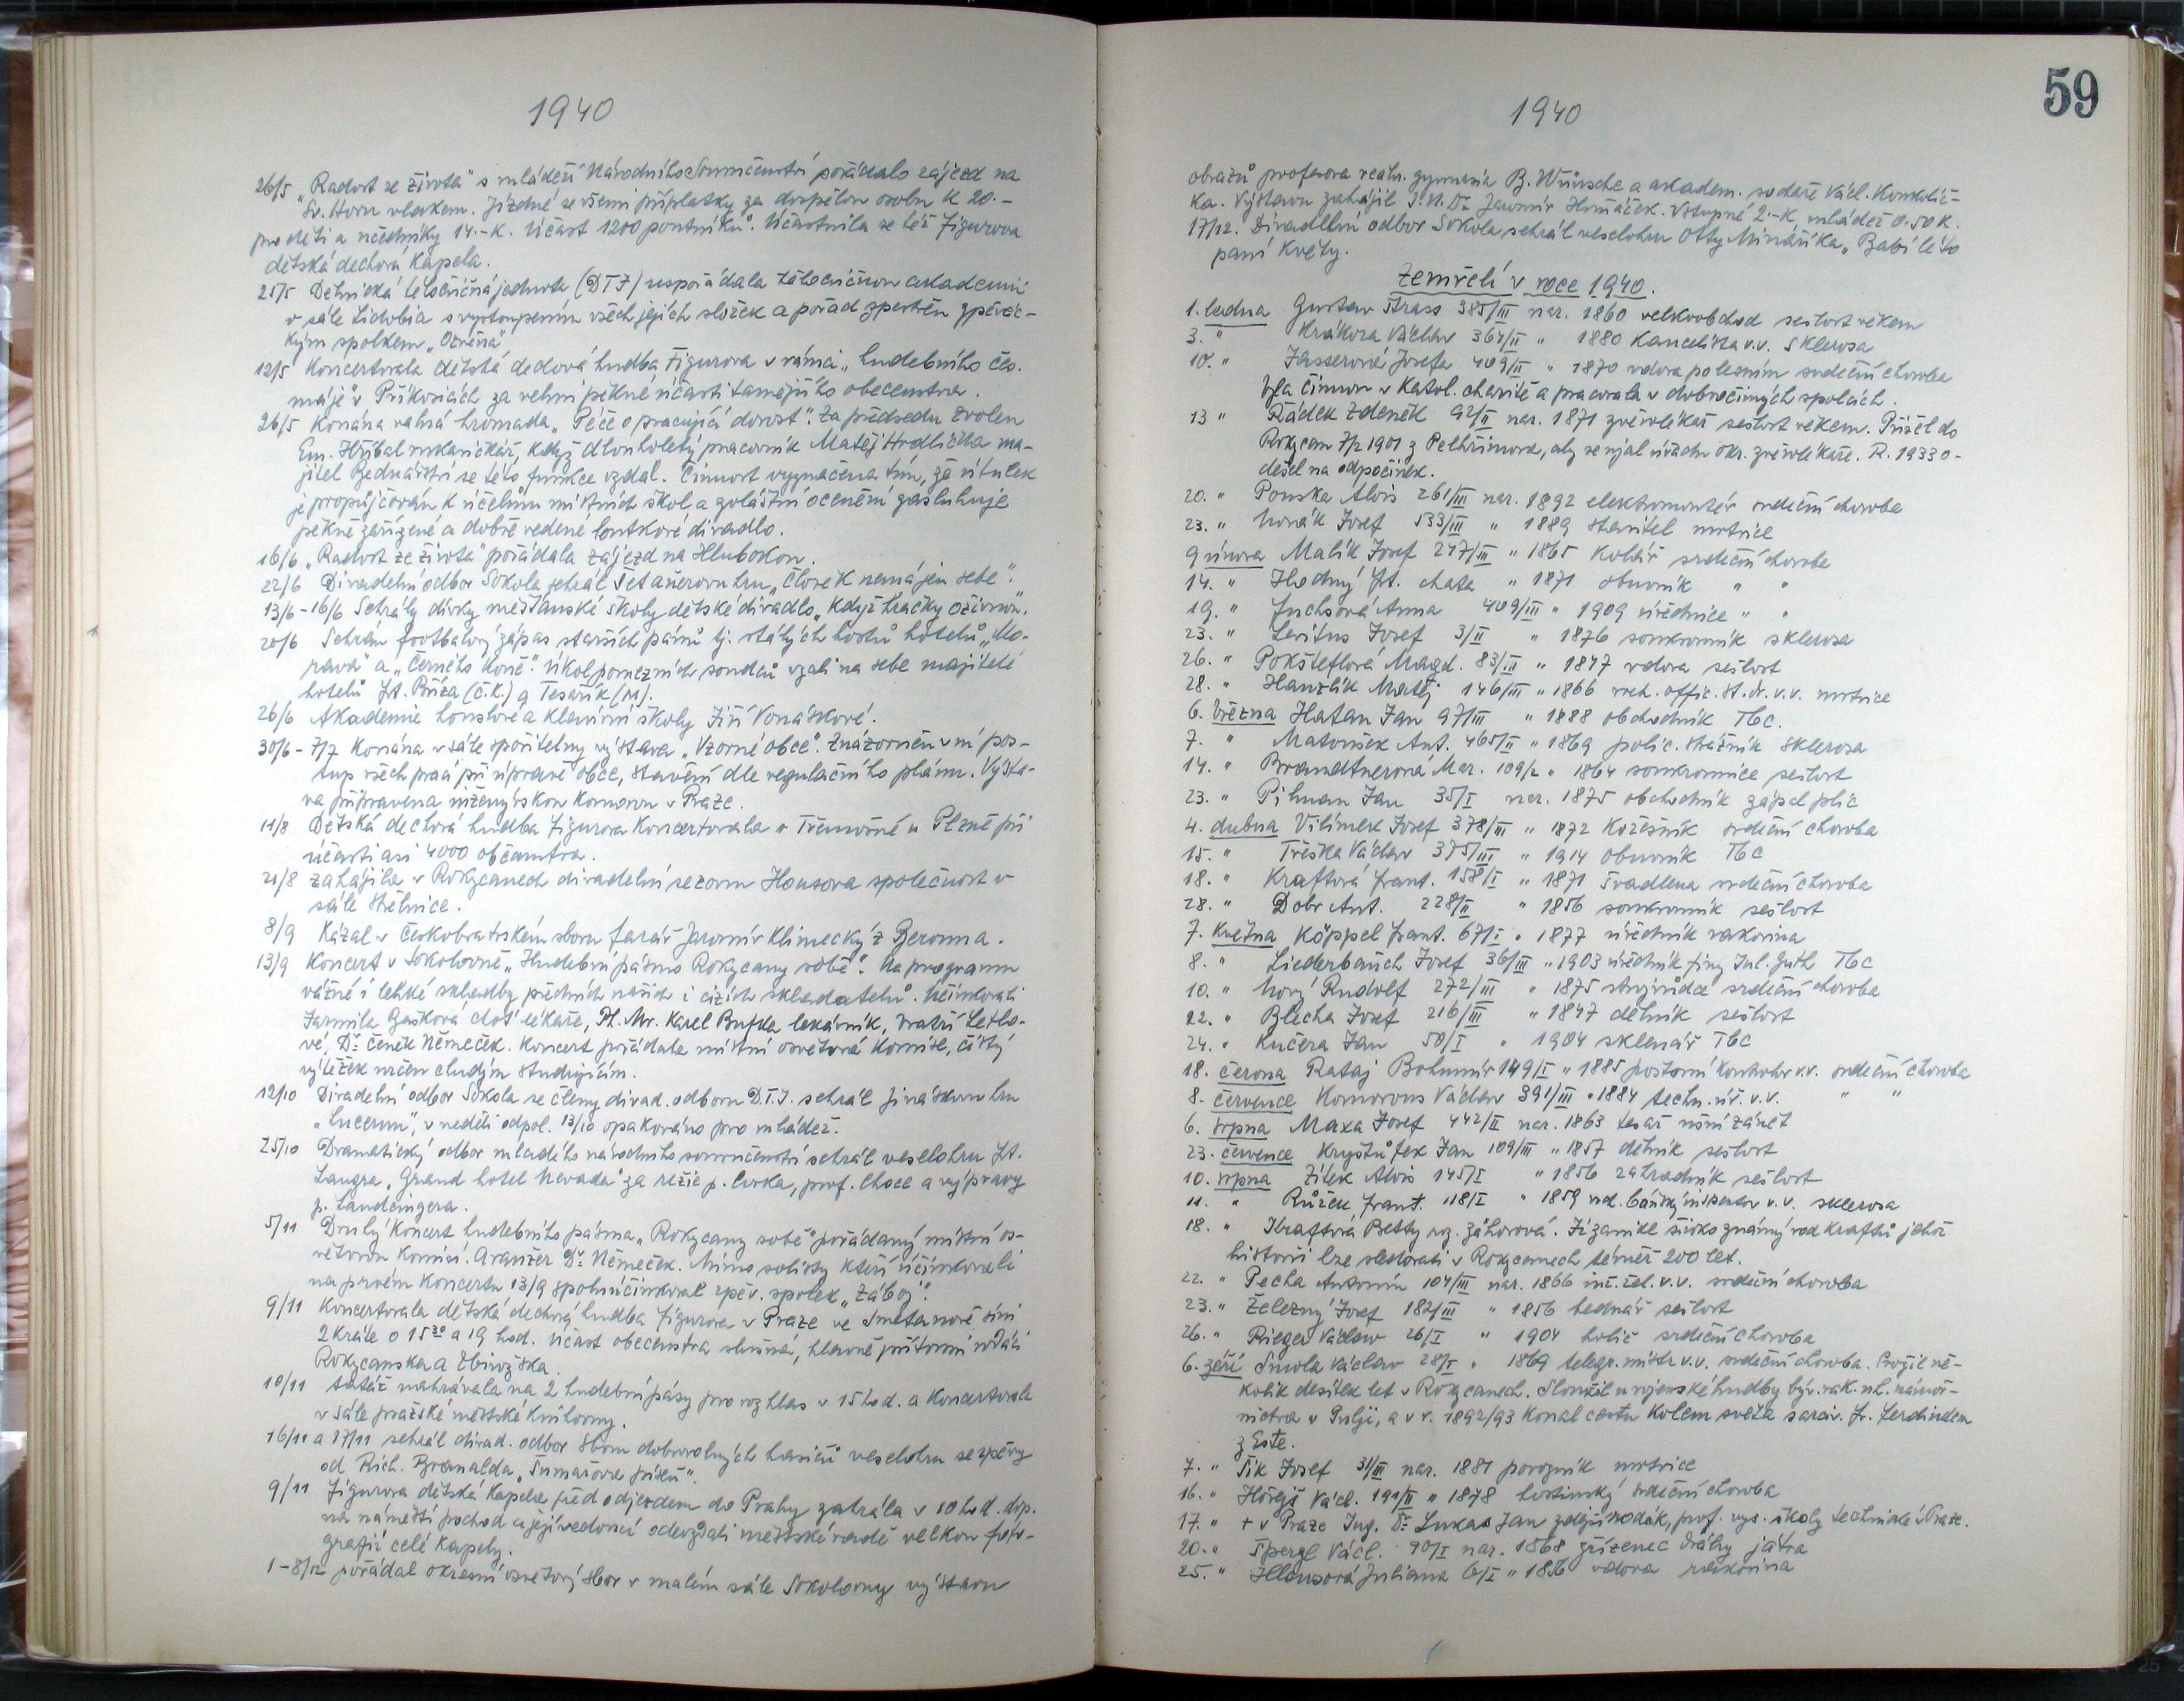 1940
26/5 „Radost ze života" s mládeží Národního Souručenství pořádalo zájezd na
Sv. Horu vlakem. Jízdné se všemi příplatky za dospělou osobu K 20.-
pro děti a učedníky 14.-K. Účast 1200 poutníků. Účastnila se též Figurova
dětská dechová kapela.
25/5 Dělnická tělocvičná jednota (DTJ) uspořádala tělocvičnou akademii
v sále Lidobia s vystoupením všech jejích složek a pořad zpestřen zpěvác-
kým spolkem „Ozvěna"
12/5 Koncertovala dětská dechová hudba Figurova v rámci „hudebního čes.
máje" v Příkosicích za velmi pěkné účasti tamějšího obecenstva.
26/5 Konána valná hromada „Péče o pracující dorost". Za předsedu zvolen
Em. Hříbal rukavičkář, když dlouholetý pracovník Matěj Hrdlička ma-
jitel bednářství se této funkce vzdal. Činnost vyznačena tím, že útulek
je propůjčován k účelům místních škol a zvláštní ocenění zasluhuje
pěkně zařízené a dobře vedené loutkové divadlo.
16/6 „Radost ze života" pořádala zájezd na Hlubokou.
22/6 Divadelní odbor Sokola sehrál Tetauerovu hru „Člověk nemá jen sebe".
13/6-16/6 Sehrály dívky měšťanské školy dětské divadlo „Když hračky oživnou.
20/6 Sehrán footbalový zápas starších pánů tj. stálých hostů hotelů „Mo-
rava" a „Černého koně". Úkol pomezních soudců vzali na sebe majitelé
hotelů Fr. Bříza (č.k.) a Tesařík (M).
26/6 Akademie houslové a klavírní školy Jiří Vonáskové.
30/6-7/7 Konána v sále spořitelny výstava „Vzorné obce". Znázorněn v ní pos-
tup všech prací při úpravě obce, stavění dle regulačního plánu. Výsta-
va připravena inženýrskou komorou v Praze.
11/8 Dětská dechová hudba Figurova koncertovala v Třemošné u Plzně při
účasti asi 4000 občanstva.
21/8 zahájila v Rokycanech divadelní sezonu Housova společnost v
sále Střelnice.
8/9 Kázal v Českobratrském sboru farář Jaromír Klimecký z Berouna.
13/9 Koncert v Sokolovně „Hudební pásmo Rokycany sobě". Na programu
vážné i lehké skladby předních našich i cizích skladatelů. Účinkovali
Jarmila Bašková choť lékaře, Ph. Mr. Karel Bufka lekárník, bratří Letlo-
vé, Dr. Čeněk Němeček. Koncert pořádala místní osvětová komise, čistý
výtěžek určen chudým studujícím.
12/10 Divadelní odbor Sokola se členy divad. odboru D.T.J. sehrál Jiráskovu hru
„Lucerna", v neděli odpol. 13/10 opakováno pro mládež.
25/10 Dramatický odbor mladého národního souručenství sehrál veselohru Fr.
Langra „Grand hotel Nevada" za režie p. Cvrka, prof. Choce a výpravy
p. Landcingera.
5/11 Druhý koncert hudebního pásma „Rokycany sobě" pořádaný místní os-
větovou komisí. Aranžer Dr. Němeček. Mimo solisty kteří účinkovali
na prvém koncertu 13/9 spoluúčinkoval zpěv. spolek „Záboj".
9/11 Koncertovala dětská dechová hudba Figurova v Praze ve Smetanově síni
2 krále o 15 30 a 19 hod. Účast obecenstva slušná, hlavně přítomni rodáci
Rokycanska a Zbirožska.
10/11 tatáž nahrávala na 2 hudební pásy pro rozhlas v 15 hod. a koncertovala
v sále pražské městské knihovny.
16/11 a 17/11 sehrál divad. odbor sboru dobrovolných hasičů veselohru se zpěvy
od Rich. Branalda „Šumařova píseň".
9/11 Figurova dětská kapela před odjezdem do Prahy zahrála v 10 hod. dop.
na náměstí pochod a její vedoucí odevzdali městské radě velkou foto-
grafii celé kapely.
1-8/12 pořádal okresní osvětový sbor v malém sále Sokolovny výstavu
59
1940
obrazů profesora reáln. gymnasia B. Wünsche a akadem. sochaře Václ. Konvalič-
ka. Výstavu zahájil J.U.Dr. Jaromír Homáček. Vstupné 2.-K, mládež 0.50 K.
17/12. Divadelní odbor Sokola sehrál veselohru Otty Mináříka „Babí léto
paní Květy.
Zemřelí v roce 1940.
1. ledna Gustav Strass 385/III nar. 1860 velkoobchod sešlost věkem
3. " Krákora Václav 364/II " 1880 kancelista v.v. Sklerosa
10. " Jasserová Josefa 409/II " 1870 vdova po lesním srdeční choroba
byla činnou v katol. charitě a pracovala v dobročinných spolcích.
13 " Řádek Zdeněk 92/II nar. 1871 zvěrolékař sešlost věkem. Přišel do
Rokycan 7/2 1901 z Pelhřimova, aby se ujal úřadu okr. zvěrolékaře. R. 1933 o-
dešel na odpočinek.
20. " Pouska Alois 261/III nar. 1892 elektromontér srdeční choroba
23. " Novák Josef 533/III " 1889 stavitel mrtvice
9 února Malík Josef 247/III " 1865 kolář srdeční choroba
14. " Hodný Fr. chata " 1871 obuvník " "
19. " Fuchsová Anna 409/III " 1909 úřednice " "
23. " Levitus Josef 3/II " 1876 soukromník sklerosa
26. " Pokšteflová Magd. 83/III " 1847 vdova sešlost
28. " Hanzlík Matěj 146/III " 1866 vrch. offic. st. dr. v.v. mrtvice
6. března Hatan Jan 97/III " 1888 obchodník Tbc.
7. " Matoušek Ant. 465/II " 1869 polic. strážník sklerosa
14. " Brandtnerová Mar. 109/2 " 1864 soukromnice sešlost
23. " Pihman Jan 35/I nar. 1875 obchodník zápal plic
4. dubna Vilímek Josef 378/III " 1872 kožešník srdeční choroba
15. " Tréska Václav 375/III " 1914 obuvník Tbc
18. " Kraftová Frant. 158/I " 1871 švadlena srdeční choroba
28. " Dobr Ant. 228/II " 1856 soukromník sešlost
7. května Köppel Frant. 67/I " 1877 úředník rakovina
8. " Liederbauch Josef 36/III " 1903 úředník firmy Jul. Guth Tbc
10. " Nový Rudolf 272/III " 1875 strojvůdce srdeční choroba
22. " Blecha Josef 216/III " 1847 dělník sešlost
24. " Kučera Jan 50/I " 1904 sklenář Tbc
18. června Rataj Bohumír 149/I " 1885 poštovní kontrolor v.v. srdeční choroba
8. července Komorous Václav 391/III " 1884 techn. úř. v.v. " "
6. srpna Maxa Josef 442/II nar. 1863 tesař ušní zánět
23. července Kryštůfek Jan 109/III " 1857 dělník sešlost
10. srpna Zítek Alois 145/I " 1856 zahradník sešlost
11. " Růžek Frant. 118/I " 1859 vrch. báňský inspektor v.v. sklerosa
18. " Kraftová Betty roz. Záhorová. Jí zanikl široko známý rod Kraftů jehož
historii lze sledovati v Rokycanech téměř 200 let.
22. " Pecha Antonín 104/III nar. 1866 inž. žel. v.v. srdeční choroba
23. " Železný Josef 182/III " 1856 bednář sešlost
26. " Rieger Václav 26/I " 1904 holič srdeční choroba
6. září Smola Václav 28/I " 1869 telegr. mistr v.v. srdeční choroba. Prožil ně-
kolik desítek let v Rokycanech. Sloužil u vojenské hudby býv. rak. uh. námoř-
nictva v Pulji, a v r. 1892/93 konal cestu kolem světa s arciv. Fr. Ferdindem
z Este.
7. " Šik Josef 31/III nar. 1881 povozník mrtvice
16. " Hořejš Václ. 191/II " 1878 hostinský srdeční choroba
17. " + v Praze Ing. Dr. Lukas Jan zdejší rodák, prof. vys. školy technické v Praze.
20. " Špergl Václ. 90/I nar. 1868 zřízenec dráhy játra
25. " Hlousová Juliana 6/I " 1856 vdova rakovina